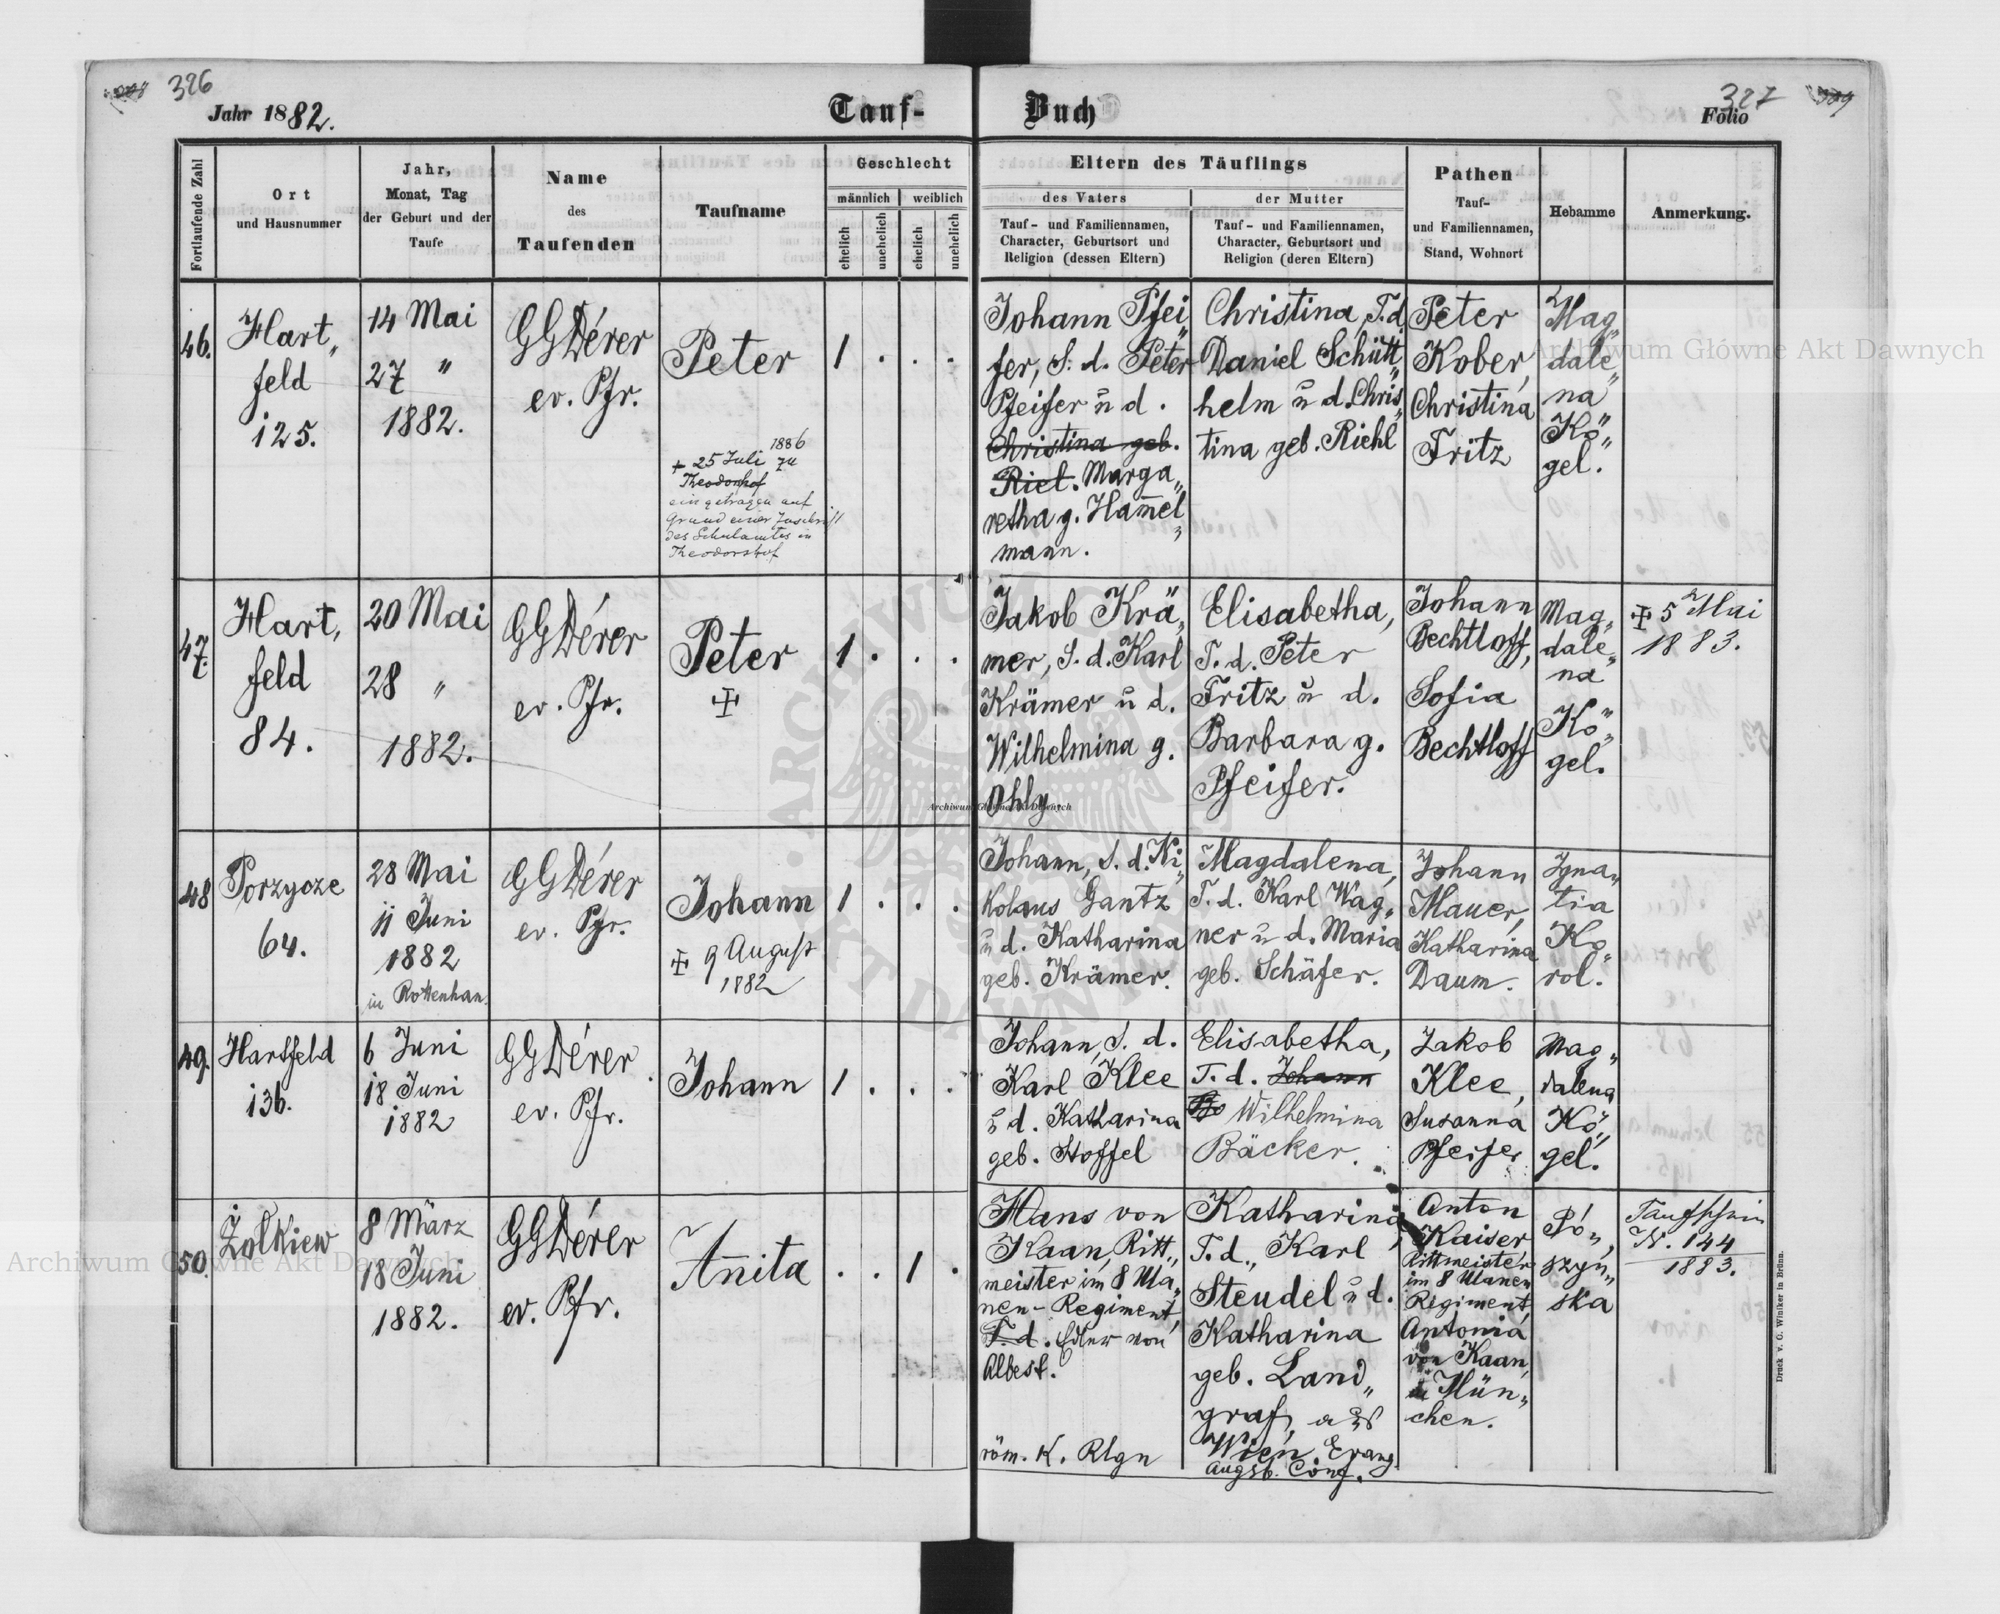 326
Jahr 1882.
Tauf-
Buch
327
Folio
Fortlaufende Zahl
Ort
und Hausnummer
Jahr,
Monat, Tag
der Geburt und der
Taufe
Name
des
Taufenden
Taufname
Geschlecht
männlich
weiblich
ehelich
unehelich
ehelich
unehelich
Eltern des Täuflings
des Vaters
Tauf- und Familiennamen,
Character, Geburtsort und
Religion (dessen Eltern)
der Mutter
Tauf- und Familiennamen,
Character, Geburtsort und
Religion (deren Eltern)
Pathen
Tauf-
und Familiennamen,
Stand, Wohnort
Hebamme
Anmerkung.
46.
Hart„
feld
125.
14 Mai
27 "
1882.
GGDérer
ev. Pfr.
Peter
1886
+ 25 Juli zu
Theodorshof
eingetragen auf
Grund einer Zuschrift
des Schulamtes in
Theodorshof
1 . . .
Johann Pfei„
fer, S. d. Peter
Pfeifer u d.
Christina geb.
Riel. Marga„
retha g. Ham̅el„
mann.
Christina, T. d.
Daniel Schütt„
helm u d. Chris„
tina geb. Riehl
Peter
Kober,
Christina
Fritz
Mag„
dale„
na
Kö„
gel.
47.
Hart,
feld
84.
20 Mai
28 "
1882.
GGDérer
ev. Pfr.
Peter
1 . . .
Jakob Krä„
mer, S. d. Karl
Krämer u d.
Wilhelmina g.
Ohly.
Elisabetha,
T. d. Peter
Fritz u d.
Barbara g.
Pfeifer.
Johann
Bechtloff,
Sofia
Bechtloff
Mag„
dale„
na
Kö„
gel.
5 Mai
1883.
48
Porzycze
64.
28 Mai
11 Juni
1882
in Rottenhan.
GGDérer
ev. Pfr.
Johann
9 August
1882
1 . . .
Johann, S. d. Ni„
kolaus Gantz
u d. Katharina
geb. Krämer.
Magdalena,
T. d. Karl Wag„
ner u d. Maria
geb. Schäfer.
Johann
Mauer,
Katharina
Daum.
Igna„
tia
Ko„
rol.
49.
Hartfeld
136.
6 Juni
18 Juni
1882
GGDérer
ev. Pfr.
Johann
1 . . .
Johann, S. d.
Karl Klee
u d. Katharina
geb. Stoffel
Elisabetha,
T. d. Johann
Wilhelmina
Bäcker.
Jakob
Klee,
Susanna
Pfeifer
Mag„
dalena
Kö„
gel.
50.
Żolkiew
8 März
18 Juni
1882.
GGDérer
ev. Pfr.
Anita
. . 1 .
Hans von
Kaan, Ritt„
meister im 8 Ula„
nen-Regiment,
T. d. Edler von
Albest.
röm. K. Rlgn
Katharina
T. d., Karl
Steudel u d.
Katharina
geb. Land„
graf, aus
Wien Evang.
Augsb. Conf.
Anton
Kaiser
Rittmeister
im 8 Ulanen
Regiment,
Antonia
von Kaan,
in Mün„
chen.
Pó„
szyn„
ska
Taufschein
N. 144
1883.
Druck v. C. Winiker in Brünn.
Archiwum Główne Akt Dawnych
Archiwum Główne Akt Dawnych
Archiwum Główne Akt Dawnych